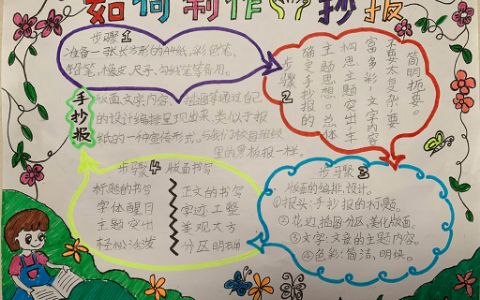 如何制作手抄报
步骤1
准备一张长方形的A4纸,彩色笔,
铅笔,橡皮,尺子,勾线笔等备用。
步骤2
确定手抄报的总体
主题思想。
构思主题突出丰
富多彩,文字内容
不要太复杂要
简明扼要。
手抄报
版面,文字内容、插画等通过自己
的设计编排呈现出来,类似于报
纸的一种宣传形式。与我们校园班级
里的黑板报一样。
步骤3
版面的编排、设计。
①报头:手抄报的标题。
②花边,插图分区,美化版面。
③文字:文章的主题内容。
④色彩:简洁、明快。
步骤4 版面书写
标题的书写
字体醒目
主题突出
轻松活泼
正文的书写
字迹工整
美观大方
分区明确